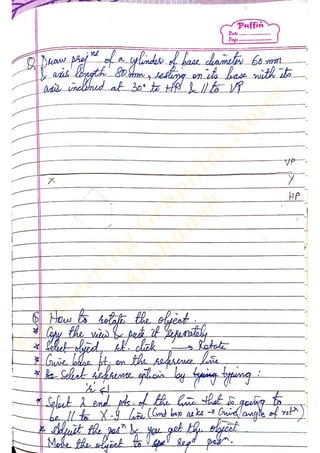 Puffin
Date
Page
Q. Draw projns of a cylinder of base diameter 60 mm
& axis length 80 mm, resting on its base with its
axis inclined at 30° to HP & // to VP
VP
X Y
HP
Q How to rotate the object.
* Copy the view & paste it seperately
* Select object, rt. click → Rotate
* Give base pt. on the reference line
* Select reference option by typing typing:
'r' ↵
* Select 2 end pts. of the line that is going to
be // to X-Y line (Gnd base axis → Give angle of rotn)
* Adjust the posn & you get the object
Move the object to reqd posn.